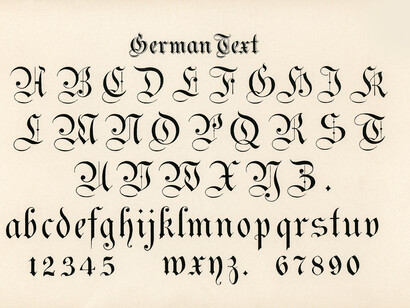 German Text
A B C D E F G H I K
L M N O P Q R S T
U V W X Y Z .
a b c d e f g h i j k l m n o p q r s t u v
1 2 3 4 5 w x y z . 6 7 8 9 0